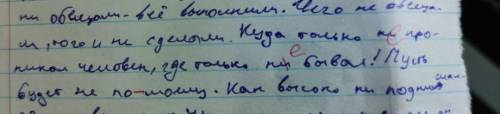 ни обещали - всё выполнили. Чего не обеща-
ли, того и не сделали. Куда только не про-
никал человек, где только не бывал! Пусть
будет не по-моему. Как высоко ни подним